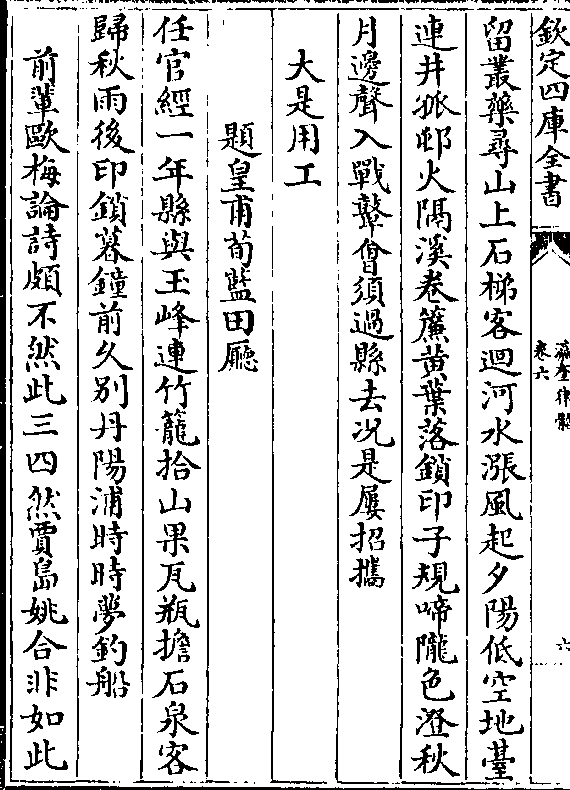 欽定四庫全書
瀛奎律髓
卷六
六
留叢藥尋山上石梯客迴河水漲風起夕陽低空地臺
連井孤邨火隔溪卷簾黄葉落鎖印子規啼隴色澄秋
月邊聲入戰鼙會須過縣去况是屢招攜
大是用工
題皇甫荀藍田廳
任官經一年縣與玉峰連竹籠拾山果瓦瓶擔石泉客
歸秋雨後印鎖暮鐘前久别丹陽浦時時夢釣船
前輩歐梅論詩頗不然此三四然賈島姚合非如此